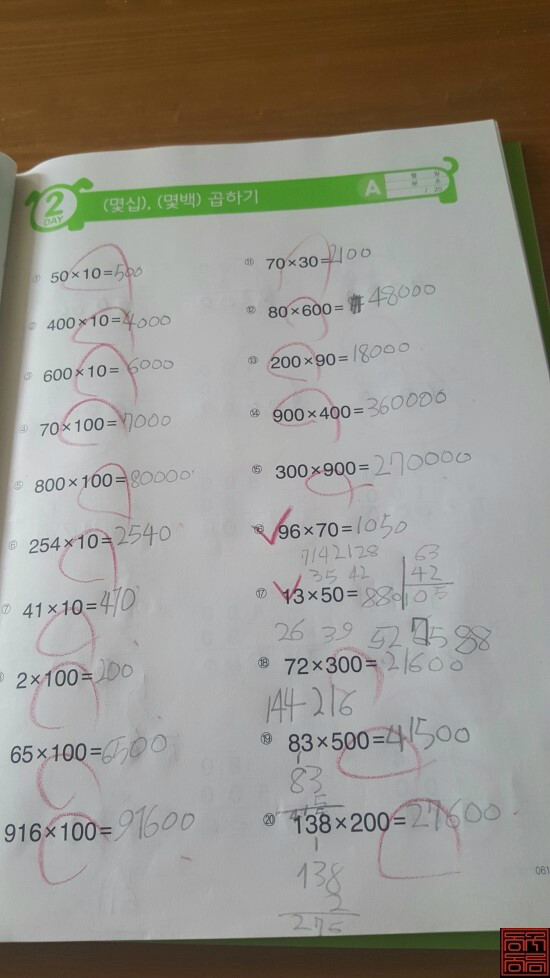 2
DAY
(몇십), (몇백) 곱하기
A
월 일
분 초
/ 20
① 50×10=500
② 400×10=4000
③ 600×10=6000
④ 70×100=7000
⑤ 800×100=80000
⑥ 254×10=2540
⑦ 41×10=410
2×100=200
65×100=6500
916×100=91600
⑪ 70×30=2100
⑫ 80×600=48000
⑬ 200×90=18000
⑭ 900×400=360000
⑮ 300×900=270000
⑯ 96×70=1050
7142128
35 42
63
42
105
⑰ 13×50=880
26 39 52 65 88
⑱ 72×300=21600
144 216
⑲ 83×500=41500
83
5
415
⑳ 138×200=27600
1
138
2
276
061